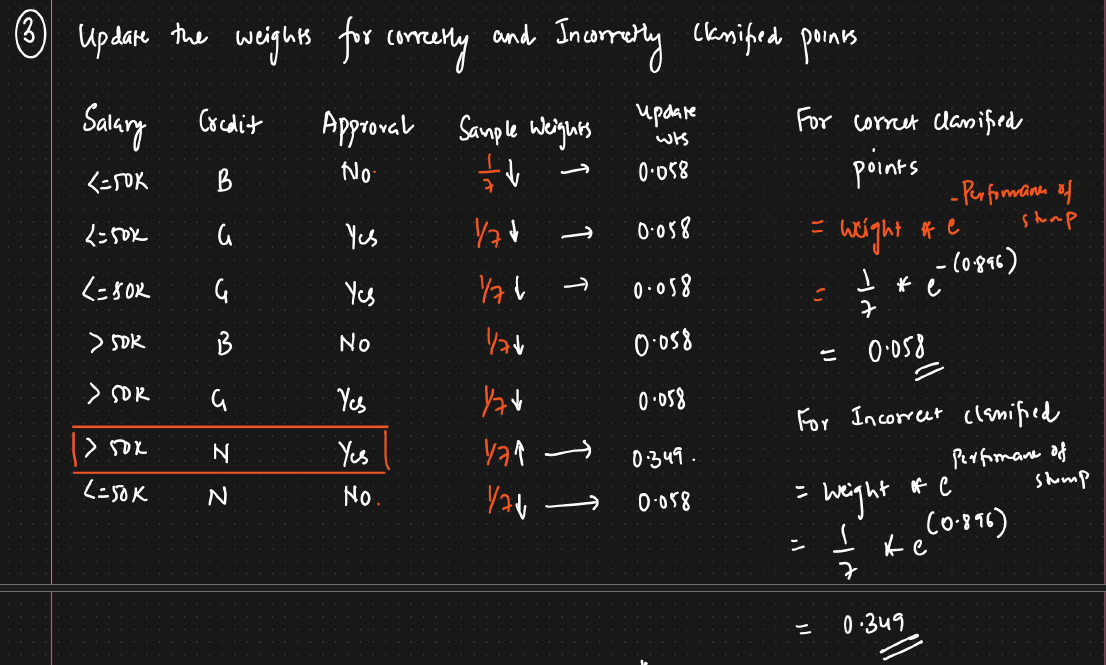 ③ Update the weights for correctly and Incorrectly Classified points
Salary Credit Approval Sample Weights Update wts
<=50K B No. 1/7 ↓ → 0.058
<=50K G Yes 1/7 ↓ → 0.058
<=50K G Yes 1/7 ↓ → 0.058
>50K B No 1/7 ↓ 0.058
>50K G Yes 1/7 ↓ 0.058
>50K N Yes 1/7 ↑ → 0.349.
<=50K N No. 1/7 ↓ → 0.058
For correct classified
points
= weight * e^-Performance of stump
= 1/7 * e^-(0.896)
= 0.058
For Incorrect classified
= weight * e^Performance of stump
= 1/7 * e^(0.896)
= 0.349